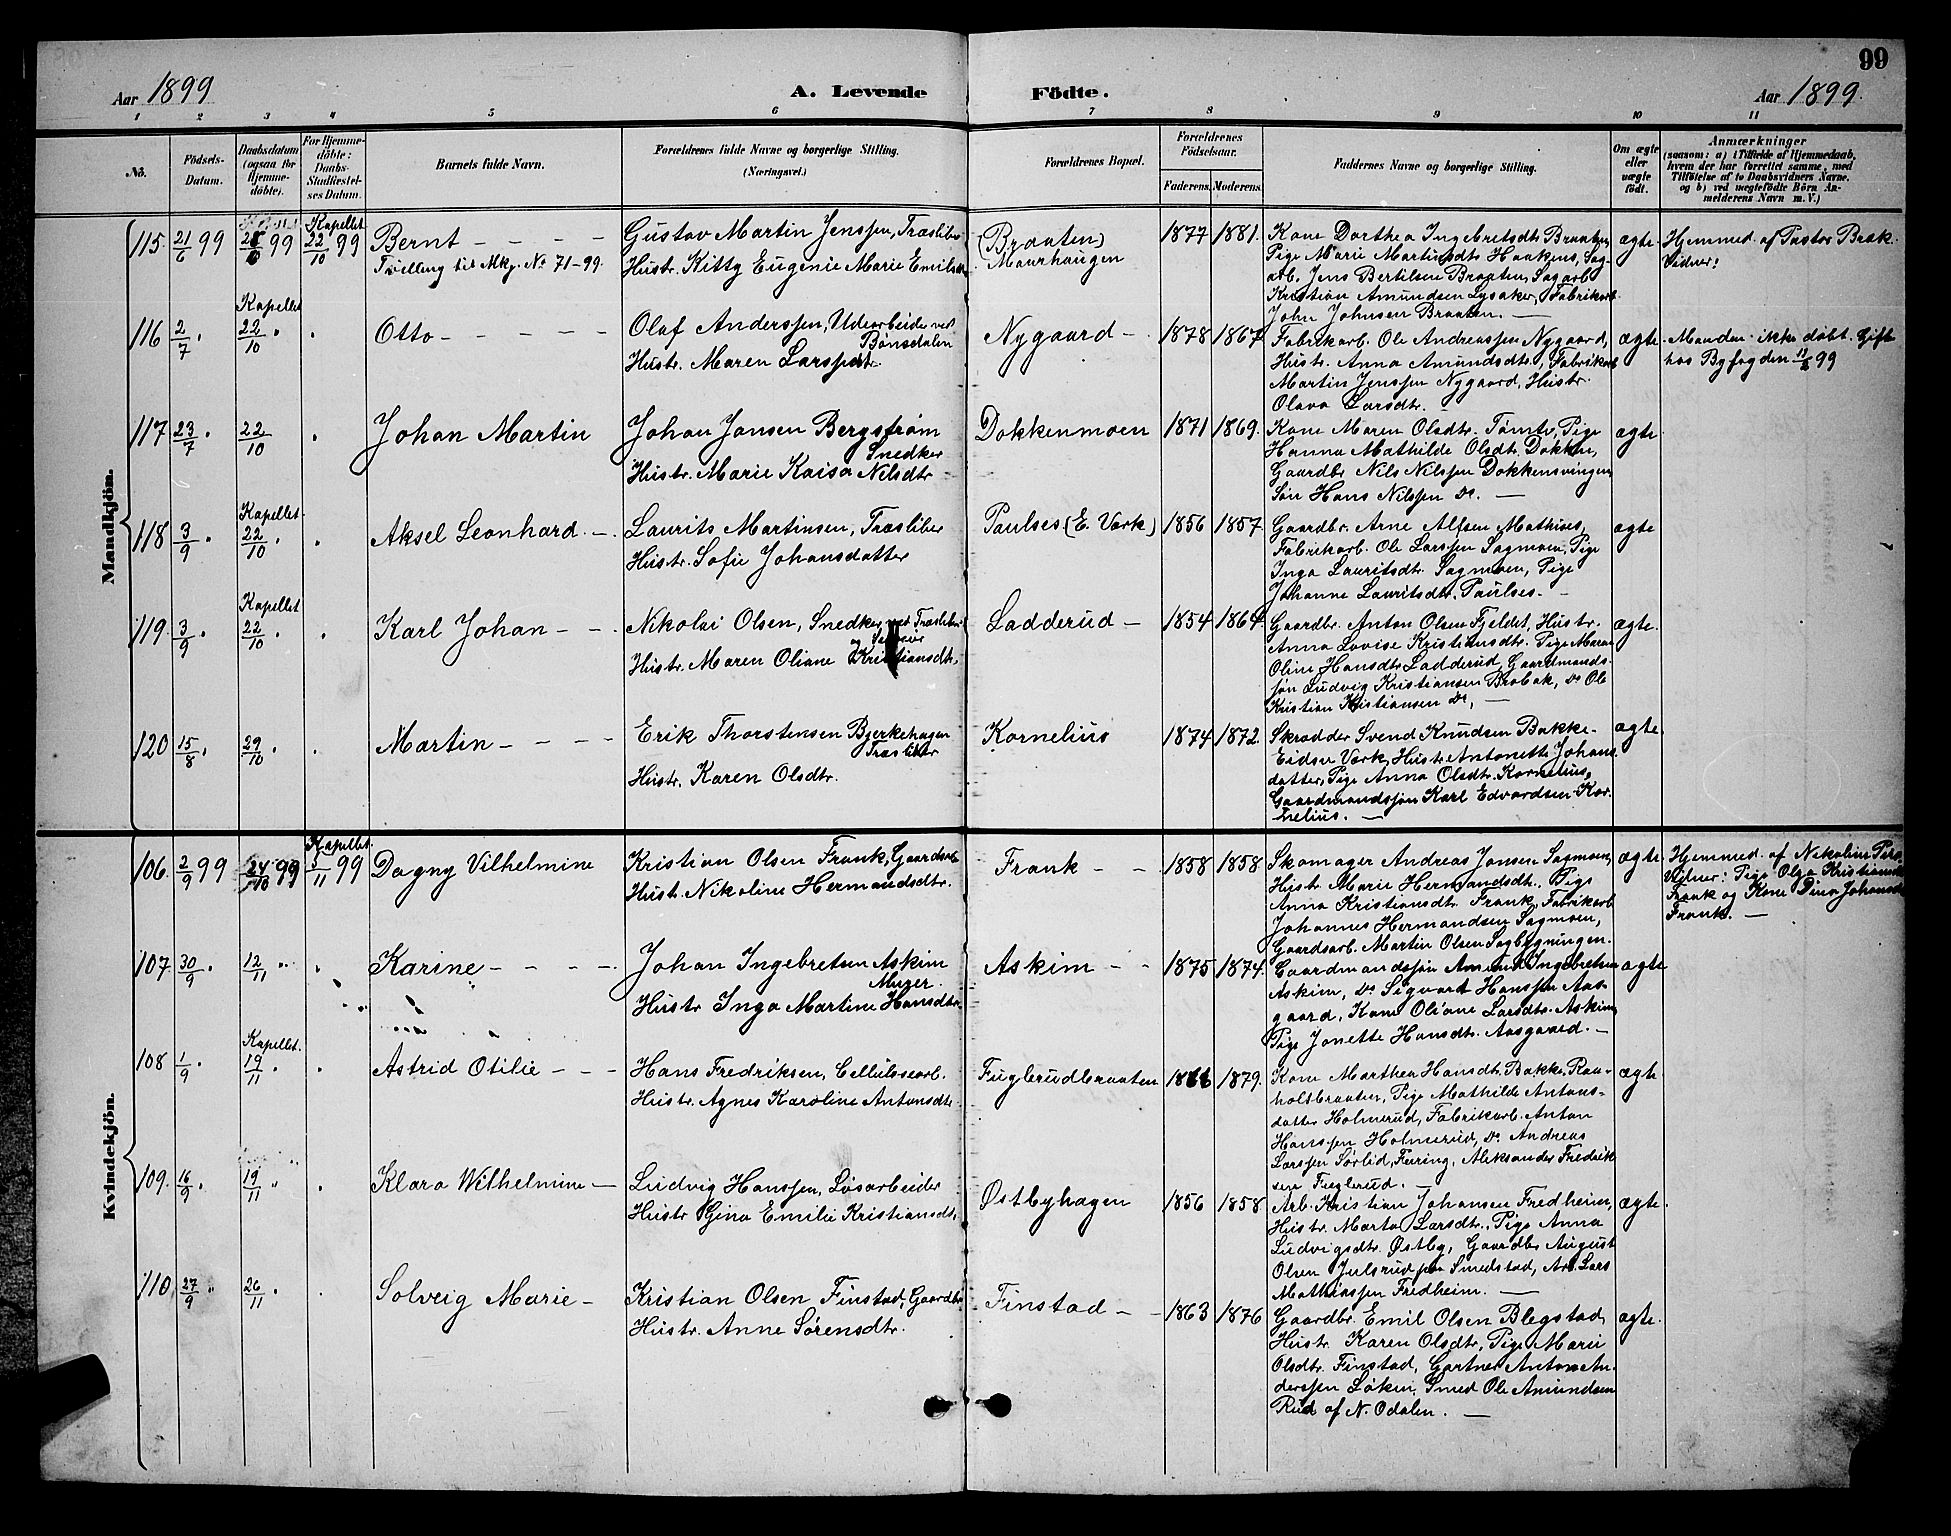 99
Aar 1899
A. Levende Födte.
Aar 1899.
1 2 3 4 5 6 7 8 9 10 11
No.
Födsels-
Datum.
Daabsdatum
(ogsaa for
Hjemme-
döbte).
For Hjemme-
döbte:
Daabs-
Stadfæstel-
ses Datum.
Barnets fulde Navn.
Forældrenes fulde Navne og borgerlige Stilling.
(Næringsvei.)
Forældrenes Bopæl.
Forældrenes
Födselsaar.
Faderens. Moderens.
Faddernes Navne og borgerlige Stilling.
Om ægte
eller
uægte
födt.
Anmærkninger
(saasom: a) i Tilfælde af Hjemmedaab,
hvem der har forrettet samme, med
Tilföielse af to Daabsvidners Navne,
og b) ved uegtefödte Börn An-
melderens Navn m. V.)
Mandkjön.
115. 21/6 99
Kapellet
22/10 99
Bernt - - - -
Tvilling til Mkj. No 71-99.
Gustav Martin Jenssen, Træsliber
Hustr. Kitty Eugenie Marie Emilsdtr
(Braaten)
Maurhaugen
1877 1881.
Kone Dorthea Ingebretsdtr Braaten,
Pige Marie Martinsdtr Haakens, Sag-
arb. Jens Bertilsen Braaten, Sagarb.
Kristian Amundsen Lysaker, Fabrikarb.
John Johnsen Braaten. —
ægte.
Hjemmed. af Pastor Brak.
Vidner:
116 2/7 "
Kapellet
22/10 "
Otto - - - -
Olaf Anderssen, Udearbeider ved
Bönsdalen
Hustr. Maren Larsdtr.
Nygaard -
1878 1867
Fabrikarb. Ole Andreassen Nygaard,
Hustr. Anna Amundsdtr, Fabrikarb
Martin Jenssen Nygaard, Hustr.
Olava Larsdtr.
ægte.
Manden ikke döbt. Gift
hos Byfogden 99
117 23/7 "
22/10
Johan Martin
Johan Jansen Bergström
Snedker
Hustr. Marie Kaisa Nilsdtr
Dokkenmoen
1871 1869.
Kone Maren Olsdtr. Tömte, Pige
Hanna Mathilde Olsdtr. Dokken,
Gaardbr. Nils Nilssen Dokkensvingen,
Sön Hans Nilssen Do. —
ægte.
118 3/9 "
Kapellet
22/10 "
Aksel Leonhard. -
Laurits Martinsen, Træsliber
Hustr. Sofie Johansdatter
Paulses (E. Værk)
1856 1857.
Gaardbr. Arne Alfsen Mathises,
Fabrikarb. Ole Larssen Sagmoen, Pige
Inga Lauritsdtr. Sagmoen, Pige
Johanne Lauritsdtr. Paulses. -
ægte
119. 3/9 "
Kapellet
22/10 "
Karl Johan - -
Nikolai Olsen, Snedker ved Træsliberi
Hustr. Maren Oliane Kristiansdtr.
Ladderud -
1854 1864
Gaardbr. Anton Olsen Fjeldet, Hustr.
Anna Lovise Kristiansdtr. Pige Maren
Oline Hansdtr Ladderud, Gaardmands-
sön Ludvig Kristiansen Brobak, Do Ole
Kristian Kristiansen Do, —
ægte.
120 15/8 "
29/10 "
Martin - - - -
Erik Thorstensen Bjerkehagen
Træsliber
Hustr. Karen Olsdtr.
Kornelius
1874 1872.
Skrædder Svend Knudsen Bakke-
Eidsv Værk, Hustr. Antonette Johans-
datter, Pige Anna Olsdtr. Kornelius,
Gaardmandssön Karl Edvardsen Kor-
nelius. —
ægte.
Kvindekjön.
106. 2/9 99
24/10 99
Kapellet.
5/11 99
Dagny Vilhelmine
Kristian Olsen Frank, Gaardsarb.
Hustr. Nikoline Hermandsdtr.
Frank - -
1858 1858
Skomager Andreas Jonsen Sagmoen,
Hustr. Marie Hermandsdtr., Pige
Anna Kristiansdtr. Frank, Fabrikarb.
Johannes Hermandsen Sagmoen,
Gaardsarb. Martin Olsen Sagbygningen.
ægte.
Hjemmed. af Nikoline
Vidner: Pige Olga Kristiansdtr
Frank og Kone Dina Johansdtr
Frank. —
107. 30/9 "
12/11 "
Karine - - - -
Johan Ingebretsen Askim
Murer.
Hustr Inga Martine Hansdtr.
Askim - -
1875 1874.
Gaardmandssön Amund Ingebretsen
Askim, Do Sigvart Hanssen Aas-
gaard, Kone Oliane Larsdtr. Askim,
Pige Jonette Hansdtr. Aasgaard. —
ægte
108 1/9 "
Kapellet.
19/11 "
Astrid Otilie - - -
Hans Fredriksen, Cellulosearb.
Hustr. Agnes Karoline Antonsdtr.
Fuglerudbraaten
1879.
Kone Marthea Hansdtr Bakke, Raa-
holtbraaten, Pige Mathilde Antons-
datter Holmerud, Fabrikarb. Anton
Hanssen Holmerud, Do Andreas
Larssen Sörlid, Feiring, Aleksander Fredrik-
sen Fuglerud.
ægte.
109. 16/9 "
19/11 "
Klara Wilhelmine -
Ludvig Hanssen, Lösarbeider
Hustr Gina Emilie Kristiansdtr.
Østbyhagen
1856 1858.
Arb. Kristian Johansen Fredheim,
Hustr. Marta Larsdtr., Pige Anna
Ludvigsdtr. Østby, Gaardbr August
Olsen Julsrud paa Smedstad, Arb. Lars
Mathiassen Fredheim. —
ægte.
110, 27/9 "
26/11 "
Solveig Marie -
Kristian Olsen Finstad, Gaardbr
Hustr. Anne Sörensdtr.
Finstad - -
1863 1876
Gaardbr. Emil Olsen Blegstad
Hustr. Karen Olsdtr, Pige Marie
Olsdtr. Finstad, Gartner Anton An-
derssen Löken, Smed Ole Amundsen
Rud af N. Odalen. —
ægte.